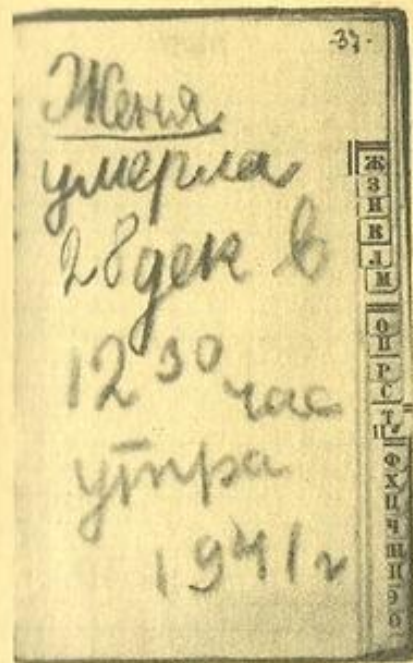 -37-
Женя
умерла
28 дек в
12 30 час
утра
1941 г
Ж
З
И
К
Л
М
О
П
Р
С
Т
Ф
Х
Ц
Ч
Ш
Э